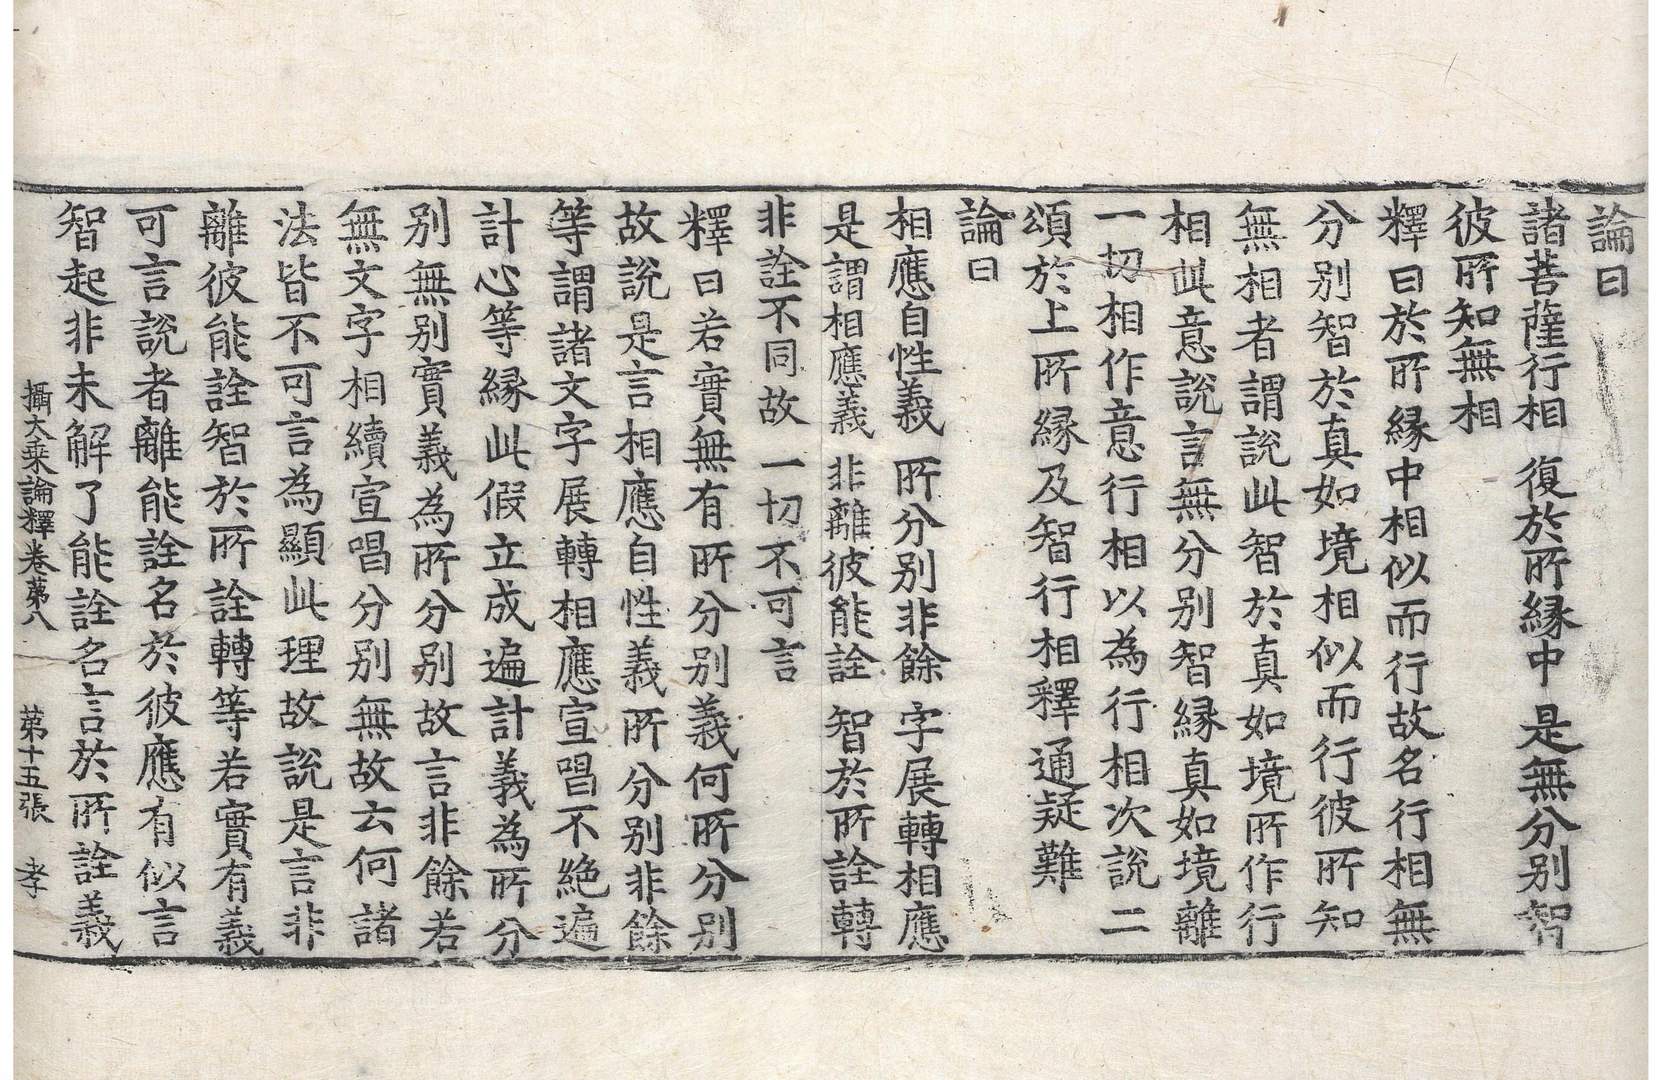 論曰
諸菩薩行相　復於所縁中　是無分別智
彼所知無相
釋曰於所縁中相似而行故名行相無
分別智於真如境相似而行彼所知
無相者謂說此智於真如境所作行
相此意說言無分別智縁真如境離
一切相作意行相以為行相次說二
頌於上所縁及智行相釋通疑難
論曰
相應自性義　所分別非餘　字展轉相應
是謂相應義　非離彼能詮　智於所詮轉
非詮不同故　一切不可言
釋曰若實無有所分別義何所分別
故說是言相應自性義所分別非餘
等謂諸文字展轉相應宣唱不絶遍
計心等縁此假立成遍計義為所分
別無別實義為所分別故言非餘若
無文字相續宣唱分別無故云何諸
法皆不可言為顯此理故說是言非
離彼能詮智於所詮轉等若實有義
可言說者離能詮名於彼應有似言
智起非未解了能詮名言於所詮義
攝大乗論釋卷苐八　苐十五張　孝